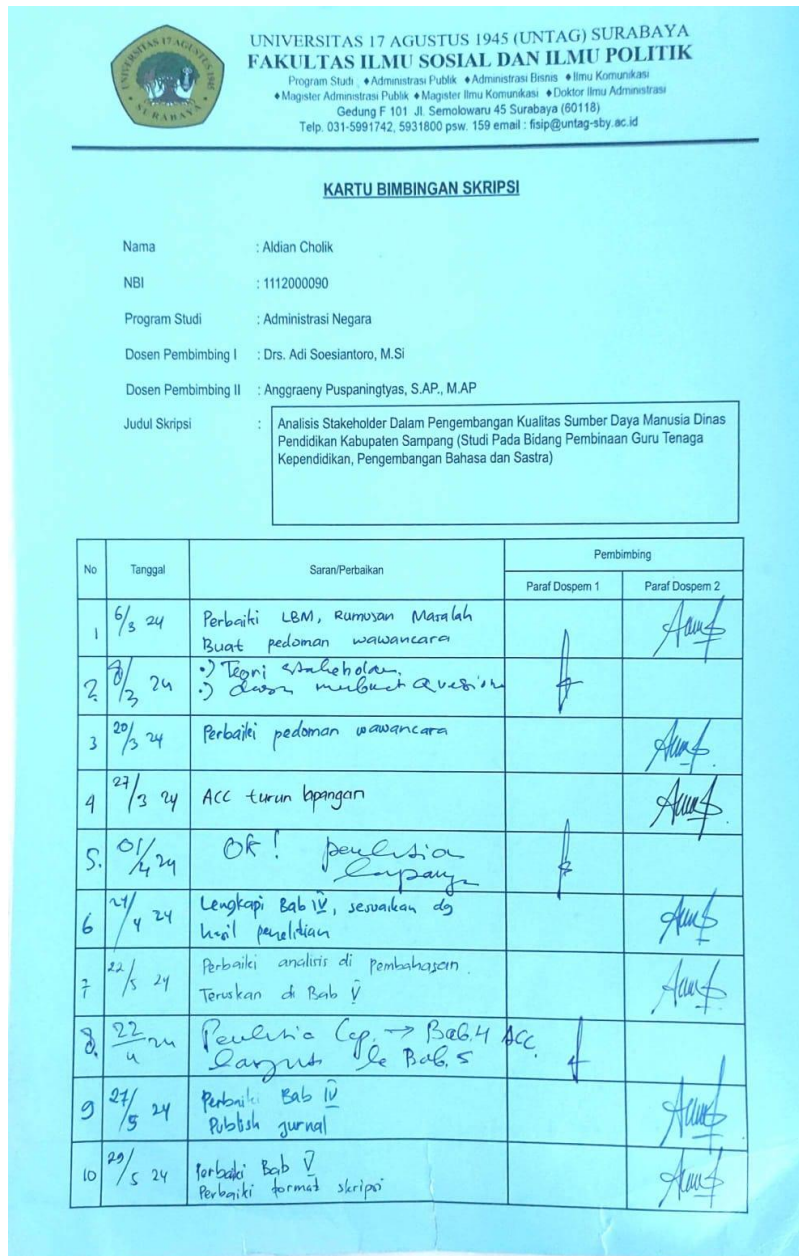 UNIVERSITAS 17 AGUSTUS 1945
SURABAYA
UNIVERSITAS 17 AGUSTUS 1945 (UNTAG) SURABAYA
FAKULTAS ILMU SOSIAL DAN ILMU POLITIK
Program Studi : ♦Administrasi Publik ♦Administrasi Bisnis ♦Ilmu Komunikasi
♦Magister Administrasi Publik ♦Magister Ilmu Komunikasi ♦Doktor Ilmu Administrasi
Gedung F 101 Jl. Semolowaru 45 Surabaya (60118)
Telp. 031-5991742, 5931800 psw. 159 email : fisip@untag-sby.ac.id
KARTU BIMBINGAN SKRIPSI
Nama : Aldian Cholik
NBI : 1112000090
Program Studi : Administrasi Negara
Dosen Pembimbing I : Drs. Adi Soesiantoro, M.Si
Dosen Pembimbing II : Anggraeny Puspaningtyas, S.AP., M.AP
Judul Skripsi : Analisis Stakeholder Dalam Pengembangan Kualitas Sumber Daya Manusia Dinas
Pendidikan Kabupaten Sampang (Studi Pada Bidang Pembinaan Guru Tenaga
Kependidikan, Pengembangan Bahasa dan Sastra)
No Tanggal Saran/Perbaikan Pembimbing
Paraf Dospem 1 Paraf Dospem 2
1 6/3 24 Perbaiki LBM, Rumusan Masalah
Buat pedoman wawancara
2. 8/3 24 •) Teori stakeholder.
•) membuat
3 20/3 24 Perbaiki pedoman wawancara
4 27/3 24 ACC turun lapangan
5. 01/4 24 OK! penelitian
lapangan
6 /4 24 Lengkapi Bab IV, sesuaikan dg
hasil penelitian
7 22/5 24 Perbaiki analisis di pembahasan.
Teruskan di Bab V
8. 22/4 24 Penelitia Lap. → Bab.4 ACC.
lanjut ke Bab. 5
9 27/5 24 Perbaiki Bab IV
Publish jurnal
10 29/5 24 Perbaiki Bab V
Perbaiki format skripsi